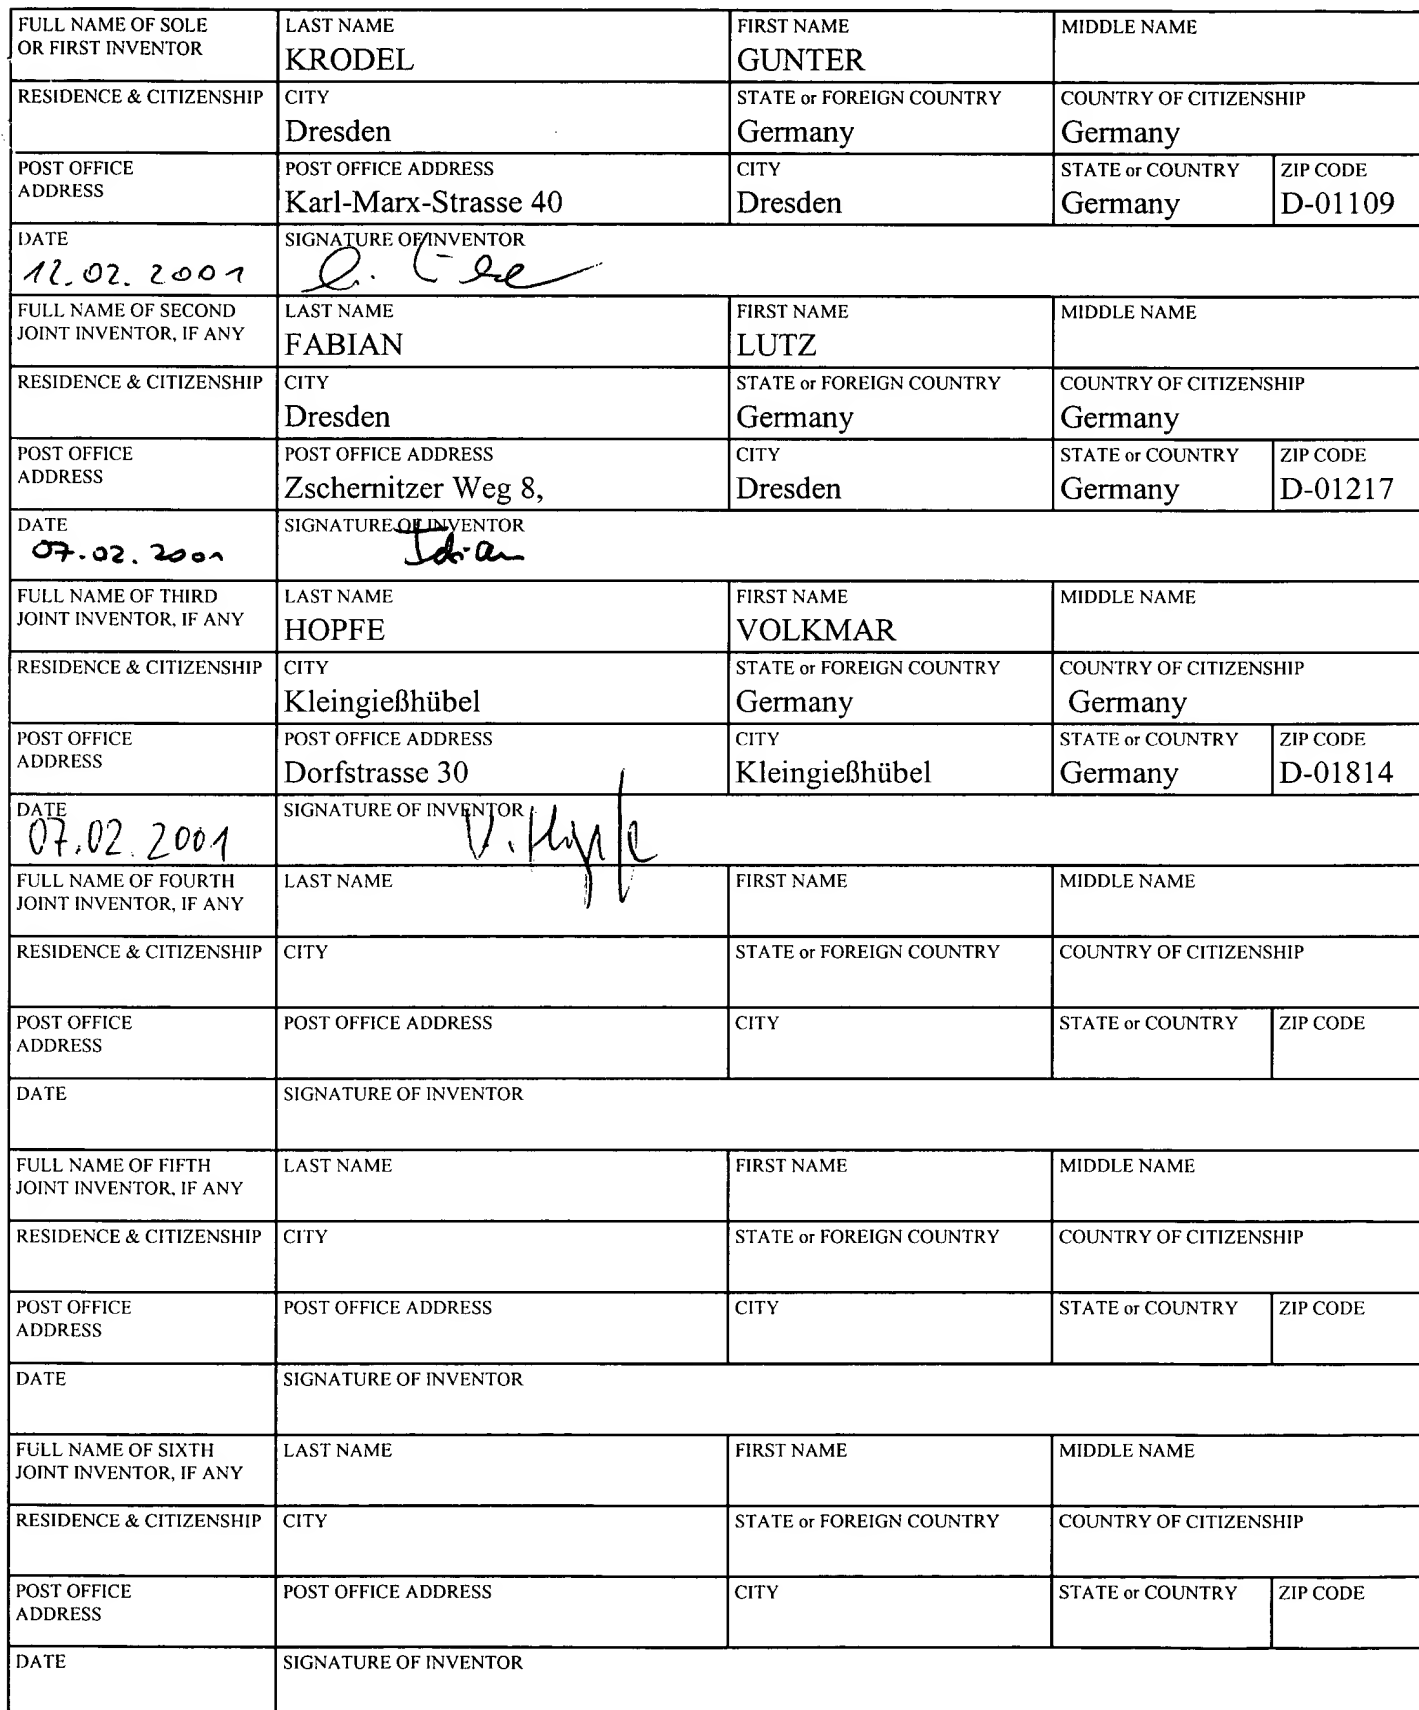 FULL NAME OF SOLE OR FIRST INVENTOR
LAST NAME
KRODEL
FIRST NAME
GUNTER
MIDDLE NAME
RESIDENCE & CITIZENSHIP
CITY
Dresden
STATE or FOREIGN COUNTRY
Germany
COUNTRY OF CITIZENSHIP
Germany
POST OFFICE ADDRESS
POST OFFICE ADDRESS
Karl-Marx-Strasse 40
CITY
Dresden
STATE or COUNTRY
Germany
ZIP CODE
D-01109
DATE
12.02.2001
SIGNATURE OF INVENTOR
FULL NAME OF SECOND JOINT INVENTOR, IF ANY
LAST NAME
FABIAN
FIRST NAME
LUTZ
MIDDLE NAME
RESIDENCE & CITIZENSHIP
CITY
Dresden
STATE or FOREIGN COUNTRY
Germany
COUNTRY OF CITIZENSHIP
Germany
POST OFFICE ADDRESS
POST OFFICE ADDRESS
Zschernitzer Weg 8,
CITY
Dresden
STATE or COUNTRY
Germany
ZIP CODE
D-01217
DATE
07.02.2001
SIGNATURE OF INVENTOR
FULL NAME OF THIRD JOINT INVENTOR, IF ANY
LAST NAME
HOPFE
FIRST NAME
VOLKMAR
MIDDLE NAME
RESIDENCE & CITIZENSHIP
CITY
Kleingießhübel
STATE or FOREIGN COUNTRY
Germany
COUNTRY OF CITIZENSHIP
Germany
POST OFFICE ADDRESS
POST OFFICE ADDRESS
Dorfstrasse 30
CITY
Kleingießhübel
STATE or COUNTRY
Germany
ZIP CODE
D-01814
DATE
07.02.2001
SIGNATURE OF INVENTOR
V. Hopfe
FULL NAME OF FOURTH JOINT INVENTOR, IF ANY
LAST NAME
FIRST NAME
MIDDLE NAME
RESIDENCE & CITIZENSHIP
CITY
STATE or FOREIGN COUNTRY
COUNTRY OF CITIZENSHIP
POST OFFICE ADDRESS
POST OFFICE ADDRESS
CITY
STATE or COUNTRY
ZIP CODE
DATE
SIGNATURE OF INVENTOR
FULL NAME OF FIFTH JOINT INVENTOR, IF ANY
LAST NAME
FIRST NAME
MIDDLE NAME
RESIDENCE & CITIZENSHIP
CITY
STATE or FOREIGN COUNTRY
COUNTRY OF CITIZENSHIP
POST OFFICE ADDRESS
POST OFFICE ADDRESS
CITY
STATE or COUNTRY
ZIP CODE
DATE
SIGNATURE OF INVENTOR
FULL NAME OF SIXTH JOINT INVENTOR, IF ANY
LAST NAME
FIRST NAME
MIDDLE NAME
RESIDENCE & CITIZENSHIP
CITY
STATE or FOREIGN COUNTRY
COUNTRY OF CITIZENSHIP
POST OFFICE ADDRESS
POST OFFICE ADDRESS
CITY
STATE or COUNTRY
ZIP CODE
DATE
SIGNATURE OF INVENTOR